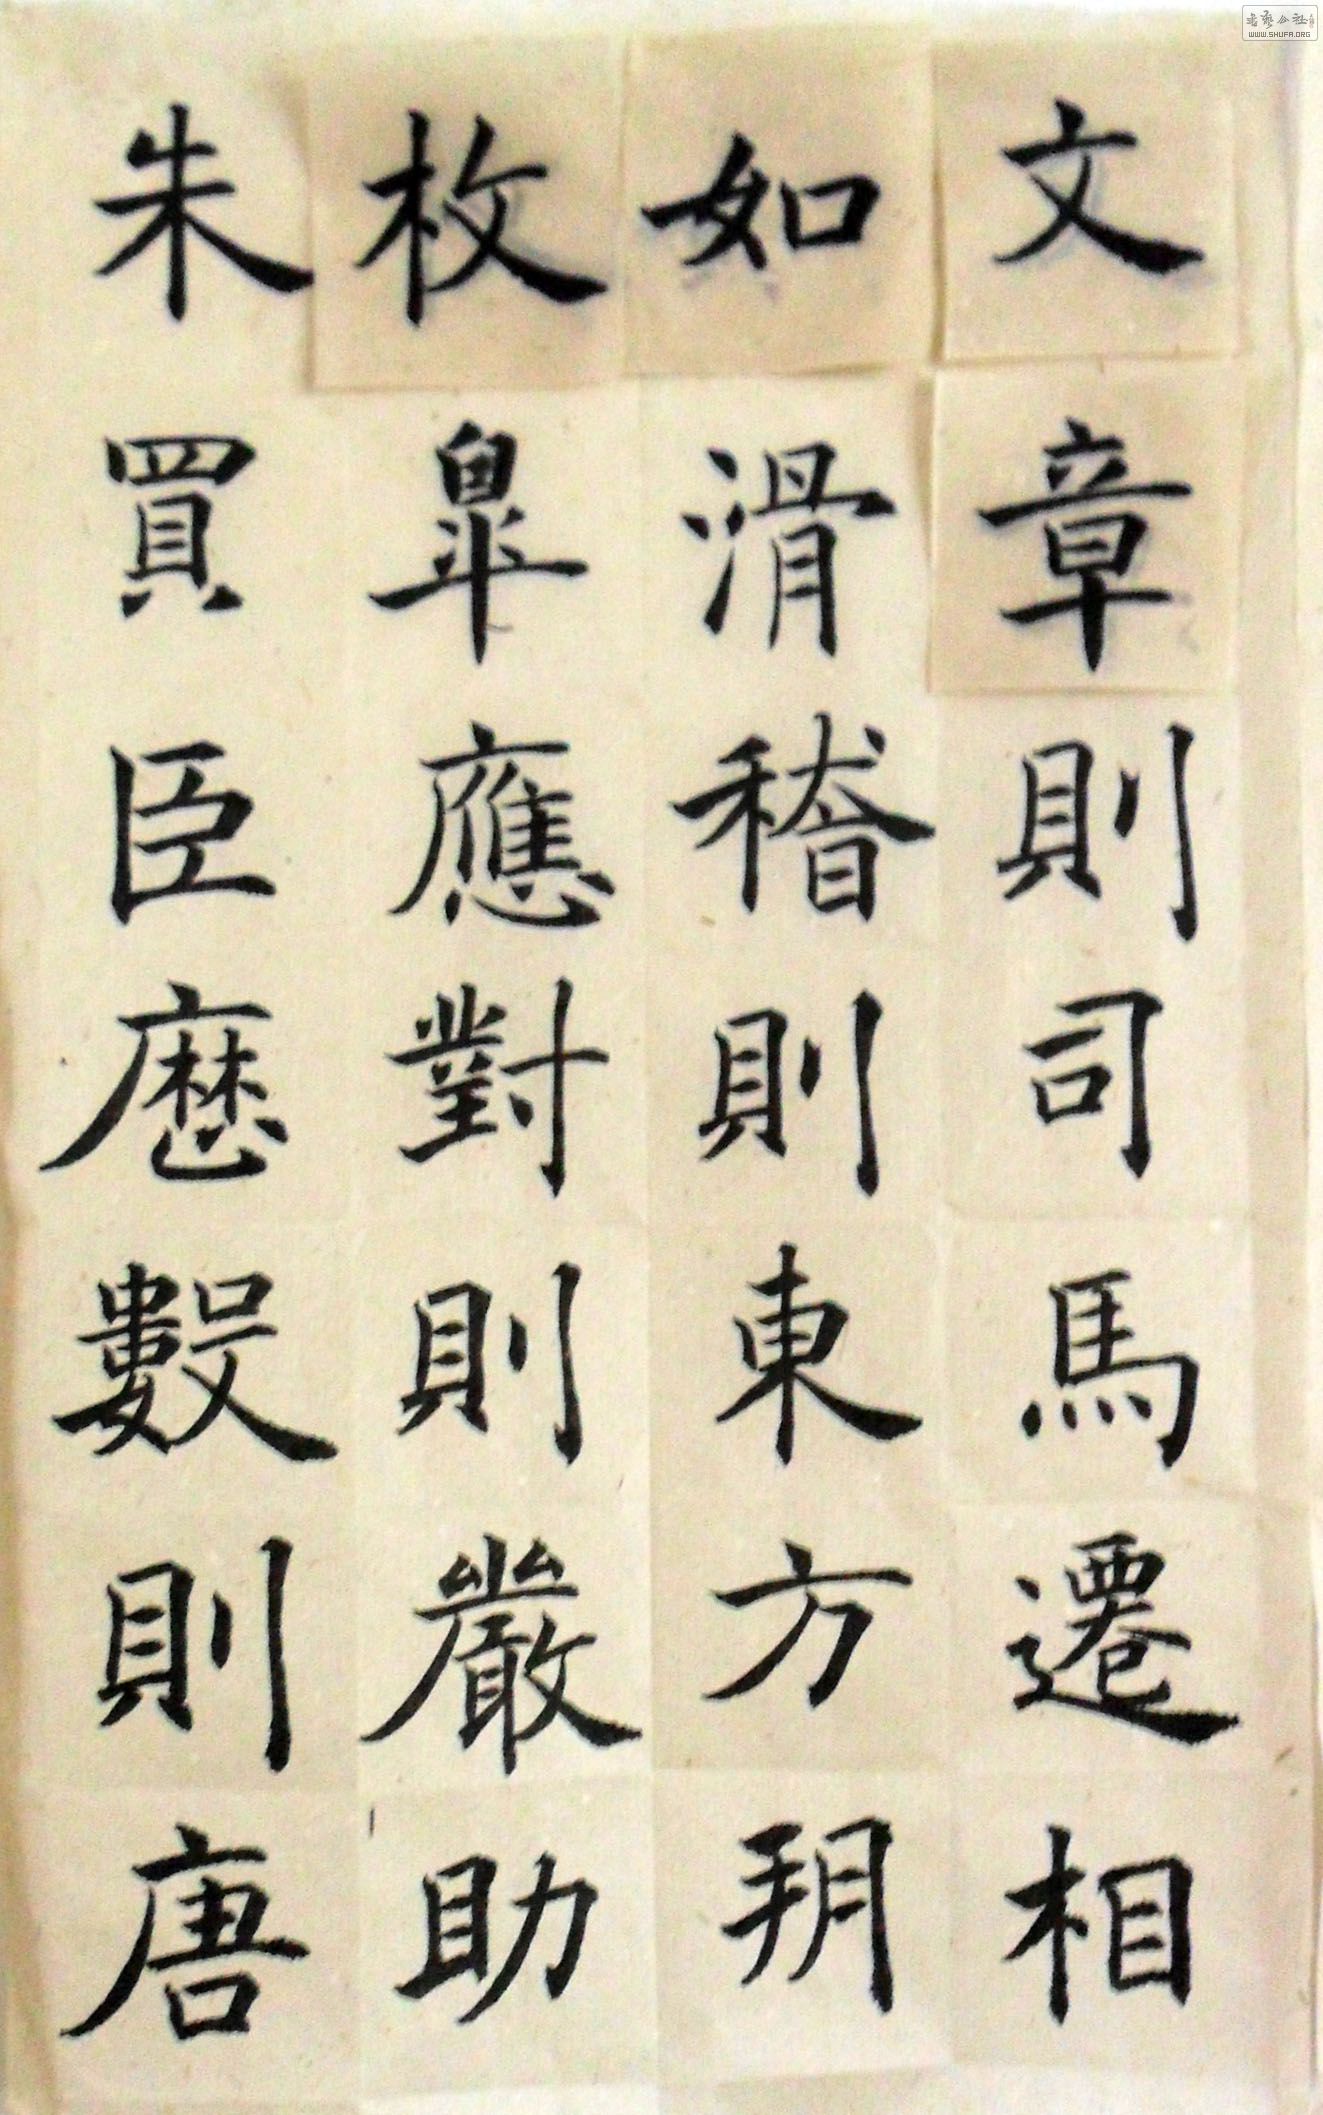 文章則司馬遷相
如滑稽則東方朔
枚皐應對則嚴助
朱買臣歷數則唐
WWW.SHUFA.ORG